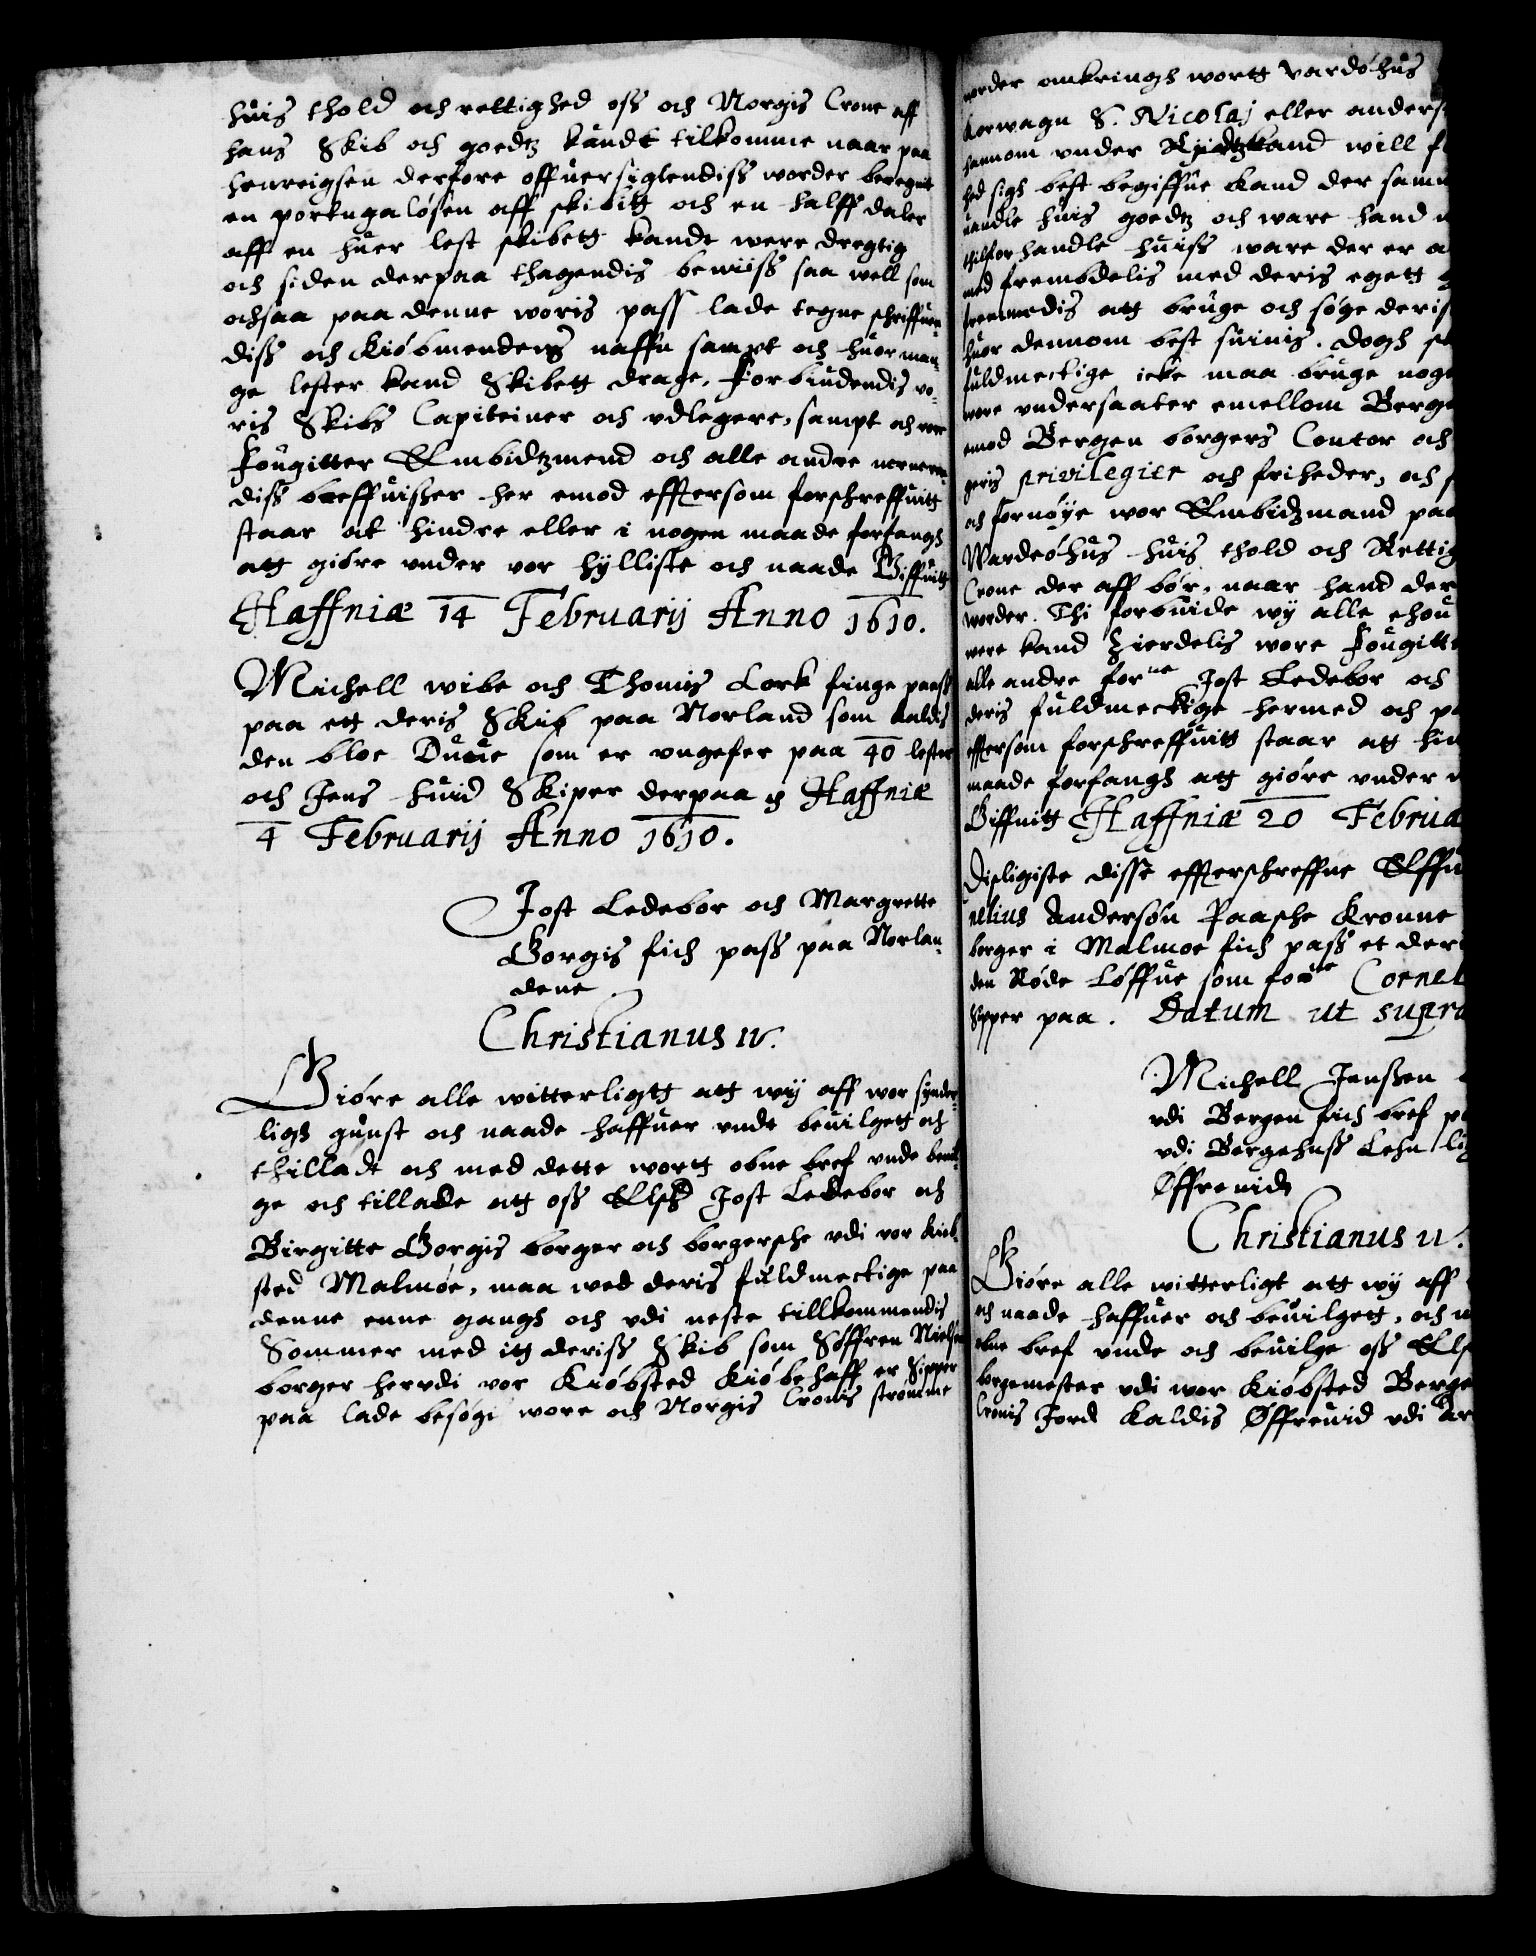 huis thold och rettighed oss och Norgis Crone aff
hans Skib och goedtz kandt tilkomme naar paa
henreigsen derfore offuersiglendiss worder beregnit
en portugaløser aff skibitt och en halff daler
aff en huer lest skibett kandt were dregtig
och siden derpaa thagendis beuiiss saa well som
ochsaa paa denne woris pass lade tegne schriffuen¬
diss och Kiøbmendens naffn sampt och huor man¬
ge lester kand Skibett drage, Forbiudendis vo¬
ris Skibs Capiteiner och vdlegere, sampt och vore
Fougitter Embidtzmend och alle andre
diss breffuisser her emod efftersom forschreffuitt
staar at hindre eller i nogen maade forfangh
att giøre vnder vor hylliste och naade Giffuitt
Haffniæ 14 Februarij Anno 1610.
Michell wibe och Thomis Lork finge paass
paa ett deris Skib paa Norland som kaldis
den bloe Duue som er vngefer paa 40 lester
och Jens huid Skiper derpaa Haffniæ
4 Februarij Anno 1610.
Jost Ledebor och Margrette
Gorgis fich pass paa Norlan¬
dene
Christianus IV.
Giøre alle witterligtt att wij aff wor synder¬
ligh gunst och naade haffuer vnde beuilgett och
thilladt och med dette wortt obne bref vnde beuil¬
ge och tillade att oss Elsch Jost Ledebor och
Birgitte Gorgis borger och borgersche vdi vor Kiøb¬
sted Malmøe, maa wed deris fuldmectige paa
denne enne gangh och vdi neste tillkommendis
Sommer med itt deriss Skib som Søffren Nielsen
borger hervdi vor Kiøbsted Kiøbehaff er Sipper
paa lade besøgi wore och Norgis Cronis strømme
worder omkringh wortt Vardøhus
Korwagn S. Nicolaj eller anders
hannom vnder Rydtzland will f
hed sigh best begiffue kand der samm
handle huis goedtz och ware hand
thilforhandle huiss ware der er a
med frembdelis med deris egett
fremmedis att bruge och søge deris
huor dennom best suinis. dogh
fuldmectige icke maa bruge nog
wore vndersaater emellom Berge
emod Bergen borgers Contor och
geris privilegier och friheder, och
och fornøye wor Embidzmand paa
Wardeøhus huis thold och Rettig
Crone der aff bør, naar hand der
worder. Thi forbuide wij alle ehou
were kand Zierdelis wore Fougitt
alle andre forne Jost Ledebor och
deris fuldmectige hermed och p
efftersom forschreffuitt staar att hin
maade forfangh att giøre vnder
Giffuitt Haffniæ 20 Februa
Disligiste disse effterschreffne Elffu
nelius Andersøn Paasche Kronne
borger i Malmoe fich pass et der
den Røde Løffue som forne Cornel
Skipper paa. Datum ut supra
Michell Jenssen
vdi Bergen fich bref p
vdi Bergehuss Lehn li
Øffreuid
Christianus IV.
Giøre alle witterligt att wij aff
och naade haffuer och beuilgett, och
obne bref vnde och beuilge oss Els
borgemester vdi wor Kiøbsted Berge
Cronis Jord Kaldis Øffreuid vdi Ar